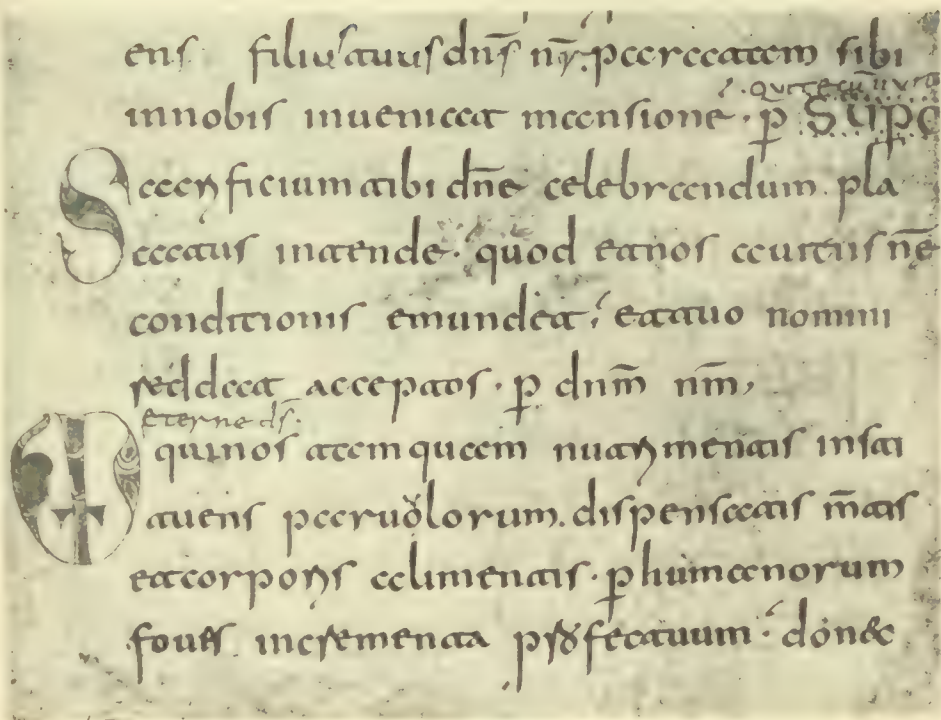 ens filius tuus dn̄s nr̄. paratam sibi
qui tecū uiu
innobis inueniat mansionē. p̄ SUP O
Sacrificium tibi dn̄e celebrandum. pla
catus intende. quod et nos a uitiis nr̄e
conditionis emundet, et tuo nomini
reddat acceptos. p̱ dnm̄ nm̄,
eterne ds̄.
qui nos tamquam nutrimentis insti
tuens paruolorum. dispensatis m̄tis
et corporis alimentis. p̱ humanorum
foues incrementa profectuum. donec